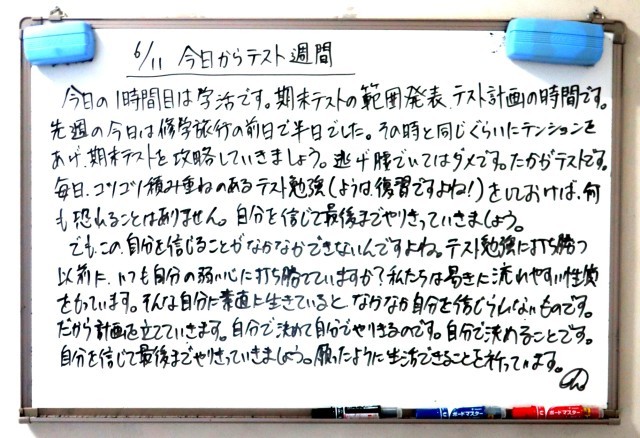 6/11 今日からテスト週間
今日の1時間目は学活です。期末テストの範囲発表、テスト計画の時間です。
先週の今日は修学旅行の前日で半日でした。その時と同じぐらいにテンションを
あげ、期末テストを攻略していきましょう。逃げ腰でいてはダメです。たかがテストです。
毎日、コツコツ積み重ねのあるテスト勉強(ようは復習ですよね!)をしておけば、何
も恐れることはありません。自分を信じて最後までやりきっていきましょう。
でも、この自分を信じることがなかなかできないんですよね。テスト勉強に打ち勝つ
以前に、いつも自分の弱い心に打ち勝てていますか?私たちは易きに流れやすい性質
をもっています。そんな自分に素直に生きていると、なかなか自分を信じられないものです。
だから計画を立てていきます。自分で決めて自分でやりきるのです。自分で決めることです。
自分を信じて最後までやりきっていきましょう。願ったように生活できることを祈っています。
ボードマスター
ボードマスター